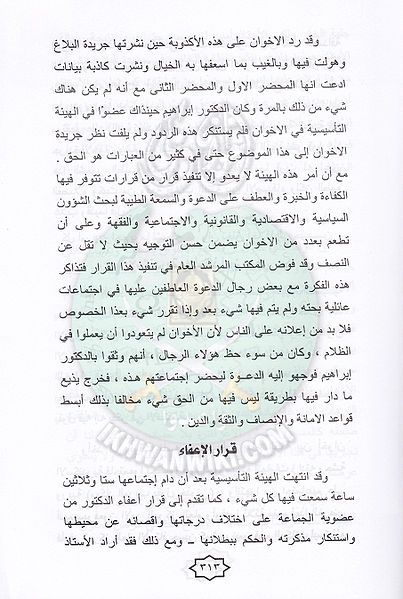 وقد رد الاخوان على هذه الأكذوبة حين نشرتها جريدة البلاغ
وهولت فيها وبالغيب بما اسعفها به الخيال ونشرت كاذبة بيانات
ادعت انها المحضر الاول والمحضر الثانى مع أنه لم يكن هناك
شيء من ذلك بالمرة وكان الدكتور إبراهيم حينذاك عضوًا في الهيئة
التأسيسية في الاخوان فلم يستنكر هذه الردود ولم يلفت نظر جريدة
الاخوان إلى هذا الموضوع حتى في كثير من العبارات هو الحق .
مع أن أمر هذه الهيئة لا يعدو إلا تنفيذ قرار من قرارات تتوفر فيها
الكفاءة والخبرة والعطف على الدعوة والسمعة الطيبة لبحث الشؤون
السياسية والاقتصادية والقانونية والاجتماعية والفقهة وعلى أن
تطعم بعدد من الاخوان يضمن حسن التوجيه بحيث لا تقل عن
النصف وقد فوض المكتب المرشد العام في تنفيذ هذا القرار فتذاكر
هذه الفكرة مع بعض رجال الدعوة العاطفين عليها في اجتماعات
عائلية بحته ولم يتم فيها شيء بعد وإذا تقرر شيء بعذا الخصوص
فلا بد من إعلانه على الناس لأن الأخوان لم يتعودوا أن يعملوا في
الظلام ، وكان من سوء حظ هؤلاء الرجال ، أنهم وثقوا بالدكتور
إبراهيم فوجهو إليه الدعـوة ليحضر إجتماعتهم هـذه ، فخرج يذيع
ما دار فيها بطريقة ليس فيها من الحق شيء مخالفا بذلك أبسط
قواعد الامانة والإنصاف والثقة والدين .
قرار الإعفاء
وقد انتهت الهيئة التأسيسية بعد أن دام إجتماعها ستا وثلاثين
ساعة سمعت فيها كل شيء ، كما تقدم إلى قرار أعفاء الدكتور من
عضوية الجماعة على اختلاف درجاتها واقصائه عن محيطها
واستنكار مذكرته والحكم ببطلانها ــ ومع ذلك فقد أراد الأستاذ
٣١٣
IKHWANWIKI.COM